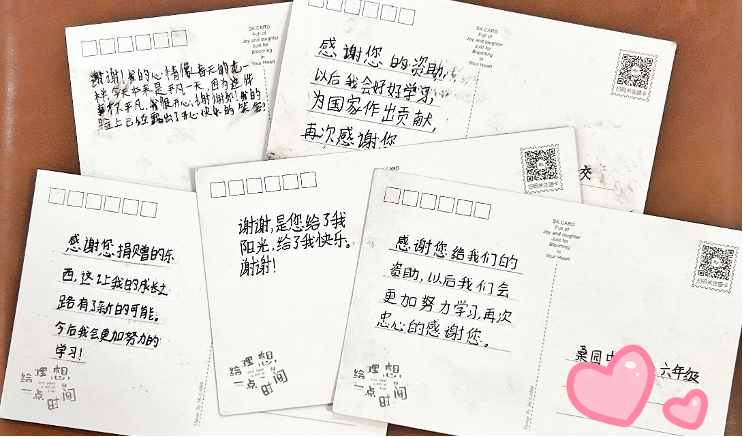 SK.CARD
Full of
Joy and laughter
Just for
Blooming
in
Your Heart
谢谢!我的心情像春天的花一
样,今天本来是平凡一天,因为这件
事不平凡,我很开心,谢谢你!我的
脸上已经露出了开心快乐的笑容!
SK.CARD
Full of
Joy and laughter
Just for
Blooming
in
Your Heart
感谢您的资助,
以后我会好好学习,
为国家作出贡献,
再次感谢您
扫码关注盛卡
校
感谢您捐赠的东
西,这让我的成长之
路有了新的可能。
今后我会更加努力的
学习!
给理想,
一点时间
SK.CARD
谢谢,是您给了我
阳光,给了我快乐。
谢谢!
扫码关注盛卡
给理想,
一点时间
SK.CARD
Full of
Joy and laughter
Just for
Blooming
in
Your Heart
感谢您给我们的
资助,以后我们会
更加努力学习,再次
忠心的感谢您。
扫码关注盛卡
桑园
六年级
给理想,
一点时间